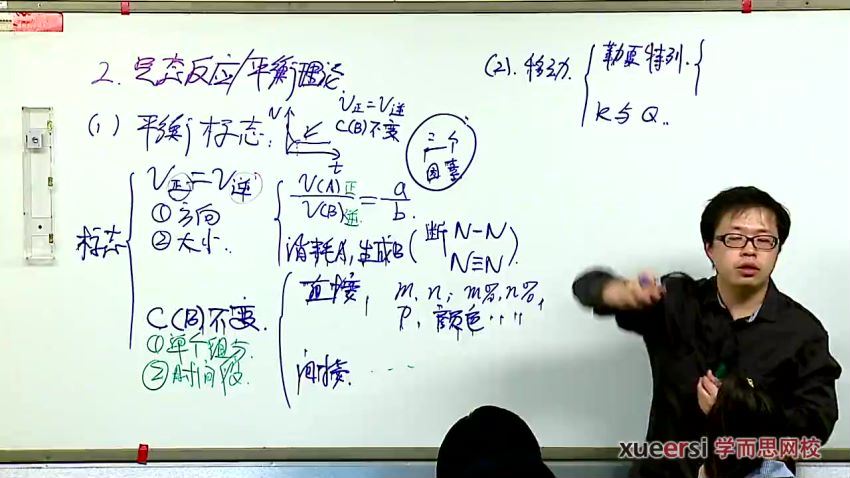 2. 完态反应/平衡理论.
(1) 平衡标志:
V
t
V正=V逆
C(B)不变
三个
因素
标志
V正=V逆
①方向
②大小.
V(A)正 / V(B)逆 = a / b.
消耗A,生成B(断 N-N
N≡N).
C(B)不变.
①单个组分.
②时间段.
直接, m, n, m%, n%,
P, 颜色……
间接. ……
(2). 移动.
勒夏特列.
K与Q..
xueersi 学而思网校